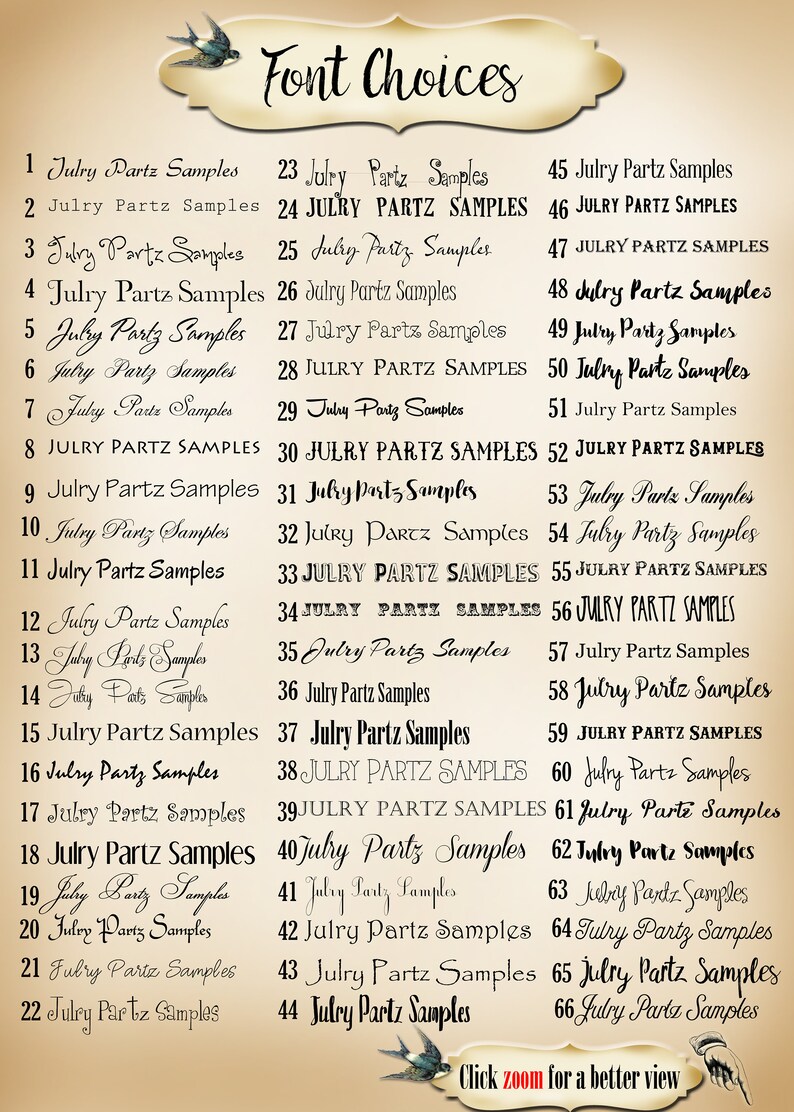 Font Choices
1 Julry Partz Samples
2 Julry Partz Samples
3 Julry Partz Samples
4 Julry Partz Samples
5 Julry Partz Samples
6 Julry Partz Samples
7 Julry Partz Samples
8 JULRY PARTZ SAMPLES
9 Julry Partz Samples
10 Julry Partz Samples
11 Julry Partz Samples
12 Julry Partz Samples
13 Julry Partz Samples
14 Julry Partz Samples
15 Julry Partz Samples
16 Julry Partz Samples
17 Julry Partz Samples
18 Julry Partz Samples
19 Julry Partz Samples
20 Julry Partz Samples
21 Julry Partz Samples
22 Julry Partz Samples
23 Julry Partz Samples
24 JULRY PARTZ SAMPLES
25 Julry Partz Samples
26 Julry Partz Samples
27 Julry Partz Samples
28 JULRY PARTZ SAMPLES
29 Julry Partz Samples
30 JULRY PARTZ SAMPLES
31 Julry Partz Samples
32 Julry Partz Samples
33 JULRY PARTZ SAMPLES
34 JULRY PARTZ SAMPLES
35 Julry Partz Samples
36 Julry Partz Samples
37 Julry Partz Samples
38 JULRY PARTZ SAMPLES
39 JULRY PARTZ SAMPLES
40 Julry Partz Samples
41 Julry Partz Samples
42 Julry Partz Samples
43 Julry Partz Samples
44 Julry Partz Samples
45 Julry Partz Samples
46 JULRY PARTZ SAMPLES
47 JULRY PARTZ SAMPLES
48 Julry Partz Samples
49 Julry Partz Samples
50 Julry Partz Samples
51 Julry Partz Samples
52 JULRY PARTZ SAMPLES
53 Julry Partz Samples
54 Julry Partz Samples
55 JULRY PARTZ SAMPLES
56 JULRY PARTZ SAMPLES
57 Julry Partz Samples
58 Julry Partz Samples
59 JULRY PARTZ SAMPLES
60 Julry Partz Samples
61 Julry Partz Samples
62 Julry Partz Samples
63 Julry Partz Samples
64 Julry Partz Samples
65 Julry Partz Samples
66 Julry Partz Samples
Click zoom for a better view